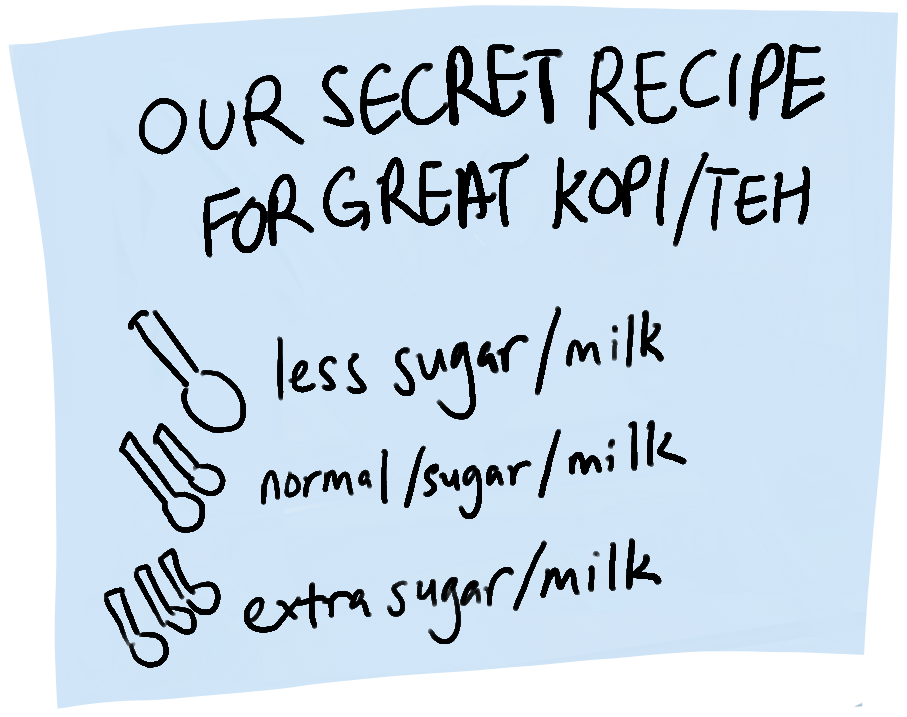 OUR SECRET RECIPE
FOR GREAT KOPI/TEH
less sugar/milk
normal/sugar/milk
extra sugar/milk